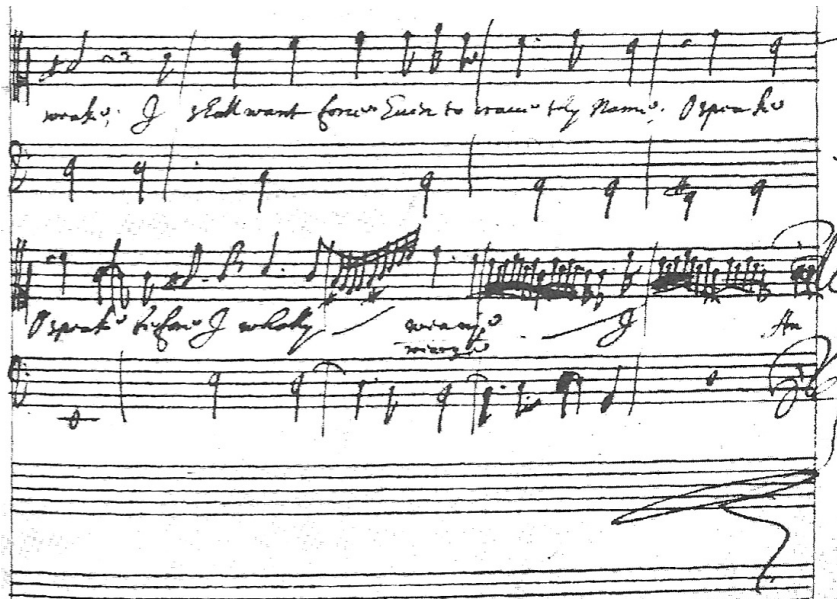 weake, I shall want force Euen to craue thy Name; O speake
O speake before I wholly weary I Am